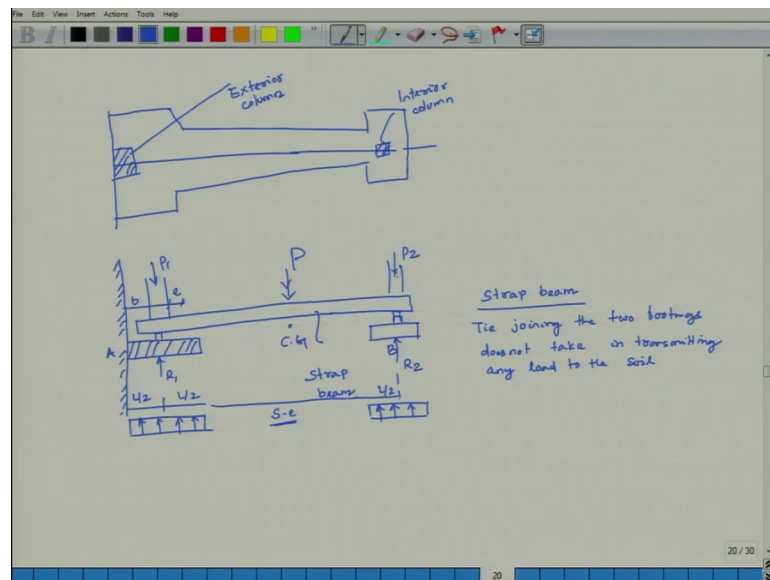 File Edit View Insert Actions Tools Help
B I
Exterior
column
Interior
column
P1
P
P2
b
e
A
C.G
B
R1
R2
Strap
beam
L/2
L/2
S-e
L/2
Strap beam
Tie joining the two footings
doesnot take in transmitting
any load to the soil
20 / 30
20